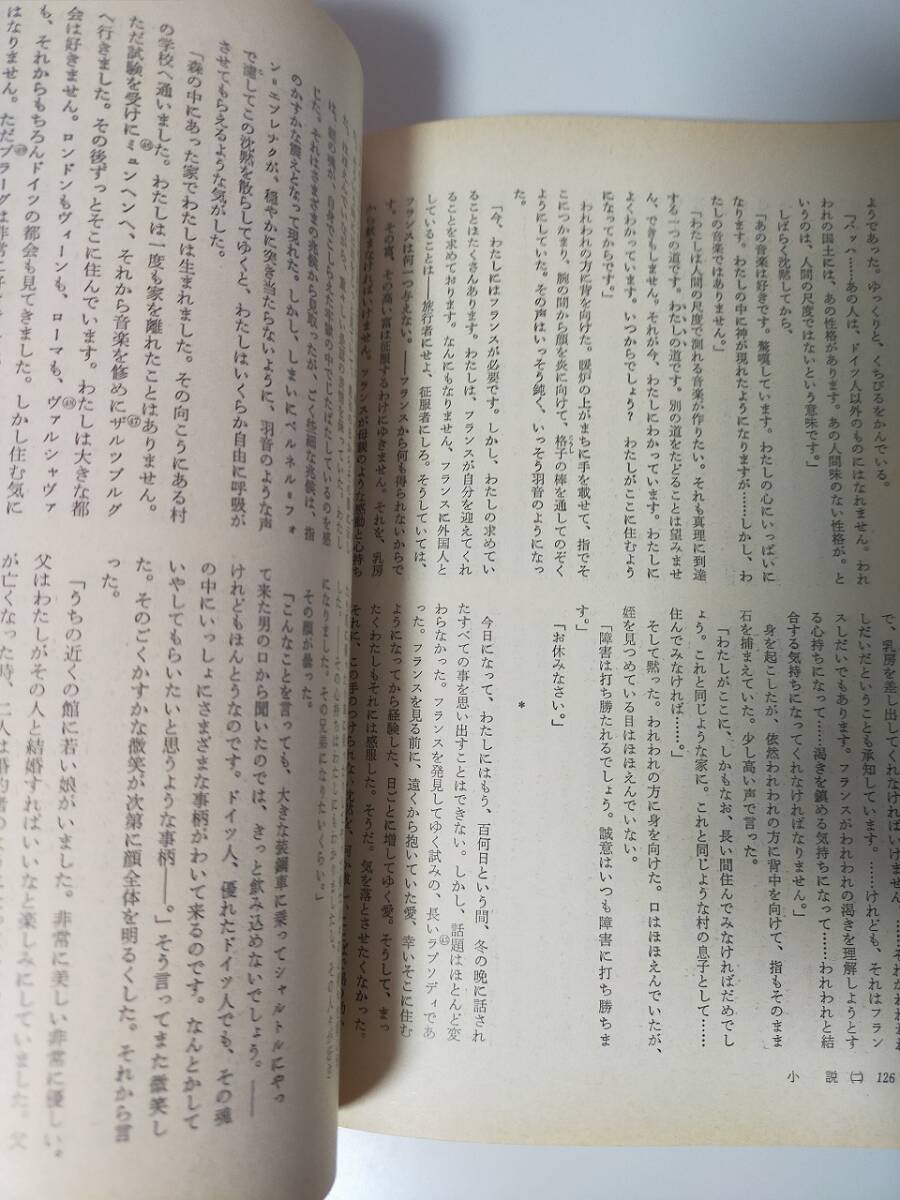 ようであった。ゆっくりと、くちびるをかんでいる。
「バッハ……あの人は、ドイツ人以外のものにはなれません。われ
われの国土には、あの性格があります。あの人間味のない性格が。と
いうのは、人間の尺度ではないという意味です。」
しばらく沈黙してから、
「あの音楽は好きです。驚嘆しています。わたしの心にいっぱいに
なります。わたしの中に神が現れたようになりますが……しかし、わ
たしの音楽ではありません。」
「わたしは人間の尺度で測れる音楽が作りたい。それも真理に到達
する一つの道です。わたしの道です。別の道をたどることは望みませ
ん、できもしません。それが今、わたしにわかっています。わたしに
よくわかっています。いつからでしょう? わたしがここに住むよう
になってからです。」
われわれの方に背を向けた。暖炉の上がまちに手を載せて、指でそ
こにつかまり、腕の間から顔を炎に向けて、格子の棒を通してのぞく
ようにしていた。その声はいっそう鈍く、いっそう羽音のようになっ
た。
「今、わたしにはフランスが必要です。しかし、わたしの求めてい
ることはたくさんあります。わたしは、フランスが自分を迎えてくれ
ることを求めております。なんにもなりません、フランスに外国人と
していることは――旅行者にせよ、征服者にしろ。そうしていては、
フランスは何一つ与えない。――フランスから何も得られないからで
す。その富、その高い富は征服するわけにゆきません。それを、乳房
から飲まなければいけません。フランスが母親のような感動と心持ち
で、乳房を差し出してくれなければいけません。
しだいだということも承知しています。……けれども、それはフラン
スしだいでもあります。フランスがわれわれの渇きを理解しようとす
る心持ちになって……渇きを鎮める気持ちになって……われわれと結
合する気持ちになってくれなければなりません。」
身を起こしたが、依然われわれの方に背中を向けて、指もそのまま
石を捕まえていた。少し高い声で言った。
「わたしがここに、しかもなお、長い間住んでみなければだめでし
ょう。これと同じような家に。これと同じような村の息子として……
住んでみなければ……。」
そして黙った。われわれの方に身を向けた。口はほほえんでいたが、
姪を見つめている目はほほえんでいない。
「障害は打ち勝たれるでしょう。誠意はいつも障害に打ち勝ちま
す。」
「お休みなさい。」
*
今日になって、わたしにはもう、百何日という間、冬の晩に話され
たすべての事を思い出すことはできない。しかし、話題はほとんど変
わらなかった。フランスを発見してゆく試みの、長いラプソディであ㊸
った。フランスを見る前に、遠くから抱いていた愛、幸いそこに住む
ようになってから経験した、日ごとに増してゆく愛。そうして、まっ
たくわたしもそれには感服した。そうだ。気を落とさせたくなかった。
小説㈡ 126
じた。それはさまざまの兆候から見取ったが、ごく些細な兆候は、指
のかすかな震えとなって現れた。しかし、しまいにベルネル=フォ
ン=エブレナクが、穏やかに突き当たらないように、羽音のような声
で濾してこの沈黙を散らしてゆくと、わたしはいくらか自由に呼吸が
させてもらえるような気がした。
「森の中にあった家でわたしは生まれました。その向こうにある村
の学校へ通いました。わたしは一度も家を離れたことはありません。
ただ試験を受けにミュンヘンへ、それから音楽を修めにザルツブルグ㊼
へ行きました。その後ずっとそこに住んでいます。わたしは大きな都
会は好きません。ロンドンもヴィーンも、ローマも、ヴァルシャヴァ
も、それからもちろんドイツの都会も見てきました。しかし住む気に
はなりません。ただプラーグは非常に
になりました。その兄弟になりたいくらい。」
その顔が曇った。
「こんなことを言っても、大きな装鋼車に乗ってシャルトルにやっ
て来た男の口から聞いたのでは、きっと飲み込めないでしょう。――
けれどもほんとうなのです。ドイツ人、優れたドイツ人でも、その魂
の中にいっしょにさまざまな事柄がわいて来るのです。なんとかして
いやしてもらいたいと思うような事柄――。」そう言ってまた微笑し
た。そのごくかすかな微笑が次第に顔全体を明るくした。それから言
った。
「うちの近くの館に若い娘がいました。非常に美しい非常に優しい。
父はわたしがその人と結婚すればいいなと楽しみにしていました。父
が亡くなった時、二人は婚約者の